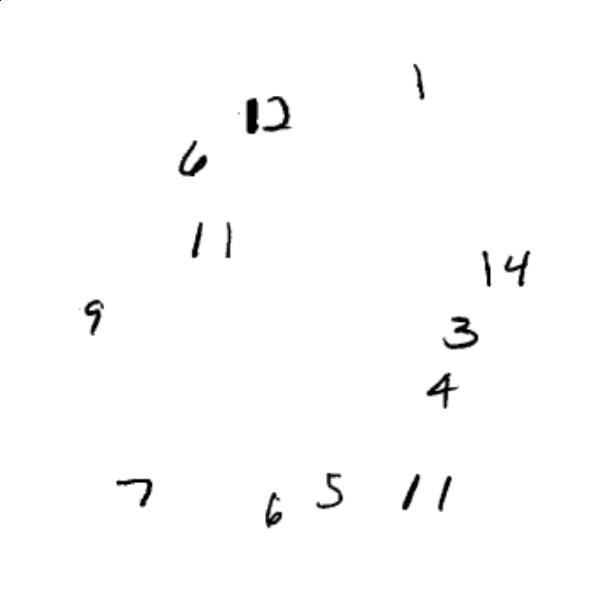 1
12
6
11
14
9
3
4
7 6 5 11